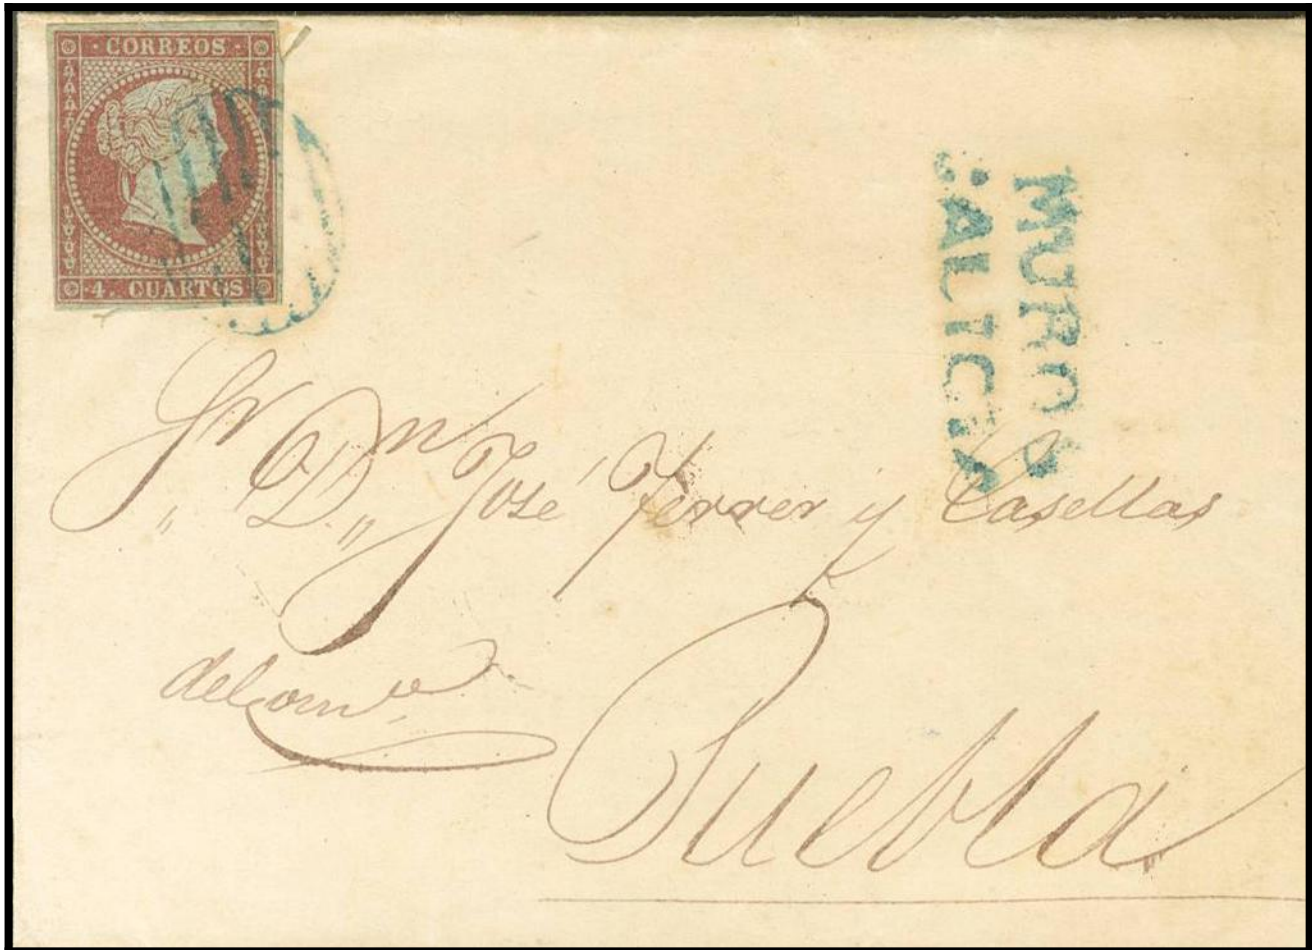 CORREOS
4. CUARTOS
MUROS
GALICIA
Sr. Dn. José Ferrer y Casellas
del comº.
Puebla